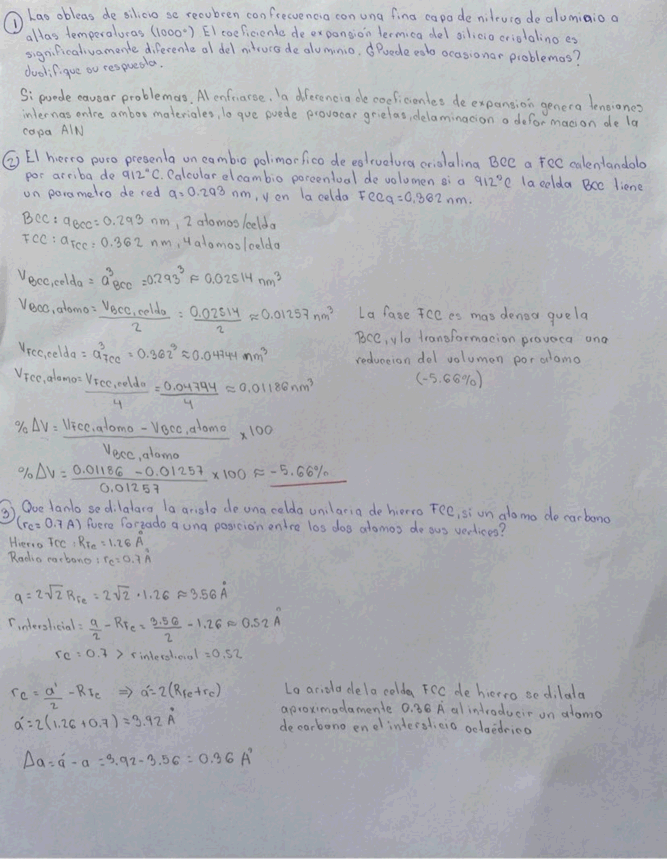 ① Las obleas de silicio se recubren con frecuencia con una fina capa de nitruro de aluminio a
altas temperaturas (1000°) El coeficiente de expansión termica del silicio cristalino es
significativamente diferente al del nitruro de aluminio. ¿Puede esto ocasionar problemas?
Justifique su respuesta.
Si puede causar problemas. Al enfriarse, la diferencia de coeficientes de expansión genera tensiones
internas entre ambos materiales, lo que puede provocar grietas, delaminacion o deformacion de la
capa AlN
② El hierro puro presenta un cambio polimorfico de estructura cristalina BCC a FCC calentandolo
por arriba de 912°C. Calcular el cambio porcentual de volumen si a 912°C la celda BCC tiene
un parametro de red a=0.293 nm, y en la celda FCC a=0.362 nm.
BCC: aBCC=0.293 nm, 2 atomos/celda
FCC: aFCC=0.362 nm, 4 atomos/celda
VBCC,celda = a³BCC =0.293³ ≈ 0.02514 nm³
VBCC,atomo= VBCC,celda/2 = 0.02514/2 ≈ 0.01257 nm³
VFCC,celda= a³FCC = 0.362³ ≈ 0.04744 nm³
VFCC,atomo= VFCC,celda/4 = 0.04744/4 ≈ 0.01186 nm³
%ΔV= VFCC,atomo - VBCC,atomo/VBCC,atomo × 100
%ΔV= 0.01186 - 0.01257/0.01257 × 100 ≈ -5.66%
La fase FCC es mas densa que la
BCC, y la transformacion provoca una
reduccion del volumen por atomo
(-5.66%)
③ Que tanto se dilatara la arista de una celda unitaria de hierro FCC, si un atomo de carbono
(rc= 0.7 A) fuera forzado a una posición entre los dos atomos de sus vertices?
Hierro FCC: RFe = 1.26 Å
Radio carbono: rc=0.7 Å
a = 2√2 RFe = 2√2 · 1.26 ≈ 3.56 Å
rintersticial = a/2 - RFe = 3.56/2 - 1.26 ≈ 0.52 Å
rc = 0.7 > rintersticial = 0.52
rc = a'/2 - RFe ⇒ a'= 2(RFe+rc)
a'= 2(1.26+0.7) = 3.92 Å
Δa= a' - a = 3.92 - 3.56 = 0.36 Å
La arista de la celda FCC de hierro se dilata
aproximadamente 0.36 Å al introducir un atomo
de carbono en el intersticio octaédrico